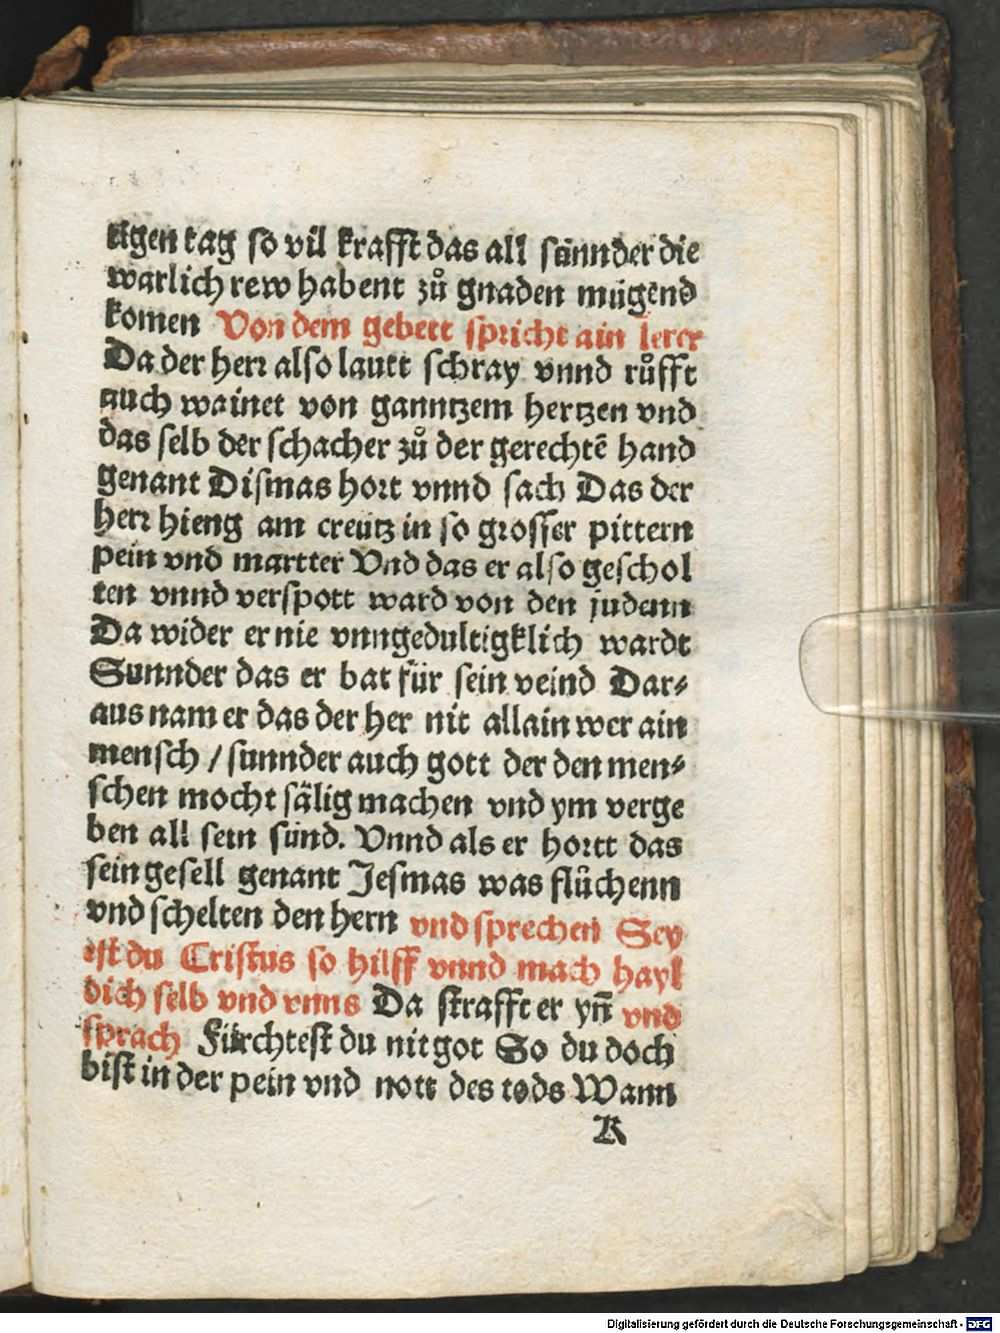 tigen tag so vil krafft das all sünnder die
warlich rew habent zů gnaden mügend
komen Von dem gebett spricht ain lerer
Da der herr also lautt schray vnnd růfft
auch wainet von ganntzem hertzen vnd
das selb der schacher zů der gerechtē hand
genant Dismas hort vnnd sach Das der
herr hieng am creütz in so grosser pittern
pein vnd martter Vnd das er also geschol
ten vnnd verspott ward von den judenn
Da wider er nie vnngedultigklich wardt
Sunnder das er bat für sein veind Dar⸗
aus nam er das der her nit allain wer ain
mensch / sunnder auch gott der den men⸗
schen mocht sälig machen vnd ym verge
ben all sein sünd. Vnnd als er hortt das
sein gesell genant Jesmas was flůchenn
vnd schelten den hern vnd sprechen Sey
est du Cristus so hilff vnnd mach hayl
dich selb vnd vnns Da strafft er yn̄ vnd
sprach Fürchtest du nit got So du doch
bist in der pein vnd nott des tods Wann
K
Digitalisierung gefördert durch die Deutsche Forschungsgemeinschaft - DFG